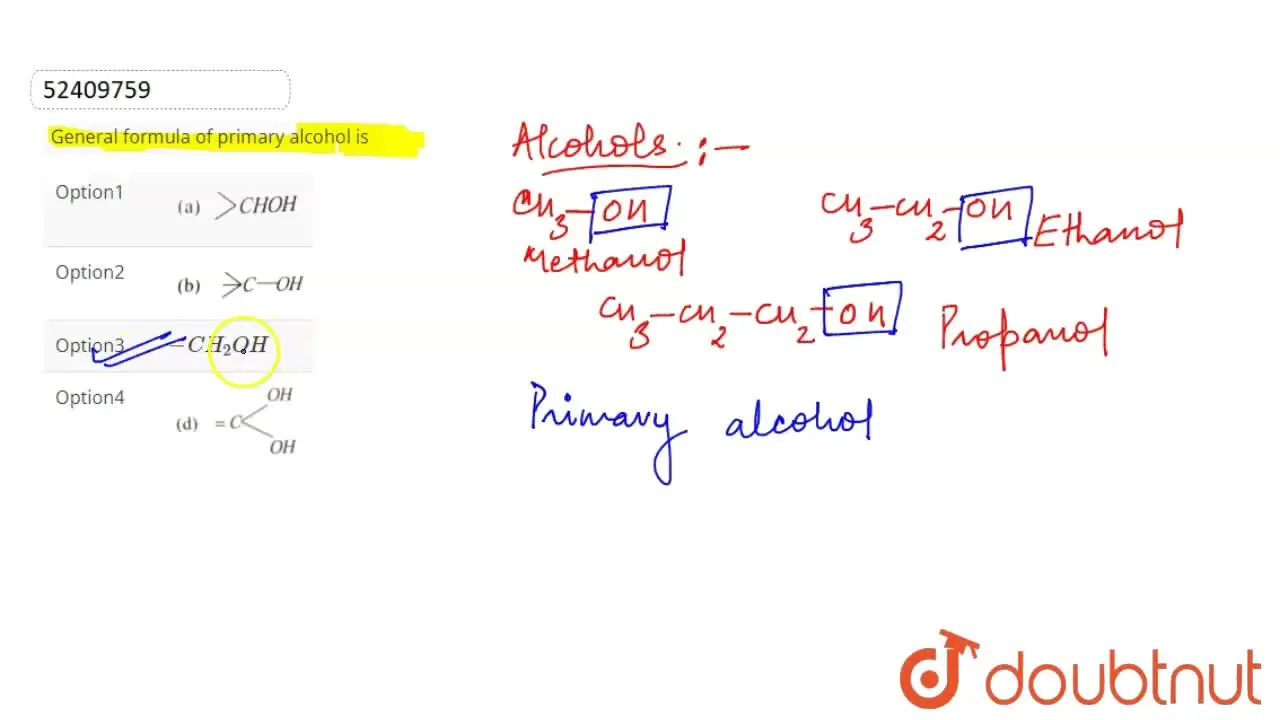 52409759
General formula of primary alcohol is
Option1
(a) >CHOH
Option2
(b) >C—OH
Option3 –CH₂OH
Option4
(d) =C< OH
OH
Alcohols :–
CH₃–OH
Methanol
CH₃–CH₂–OH Ethanol
CH₃–CH₂–CH₂–OH Propanol
Primary alcohol
doubtnut